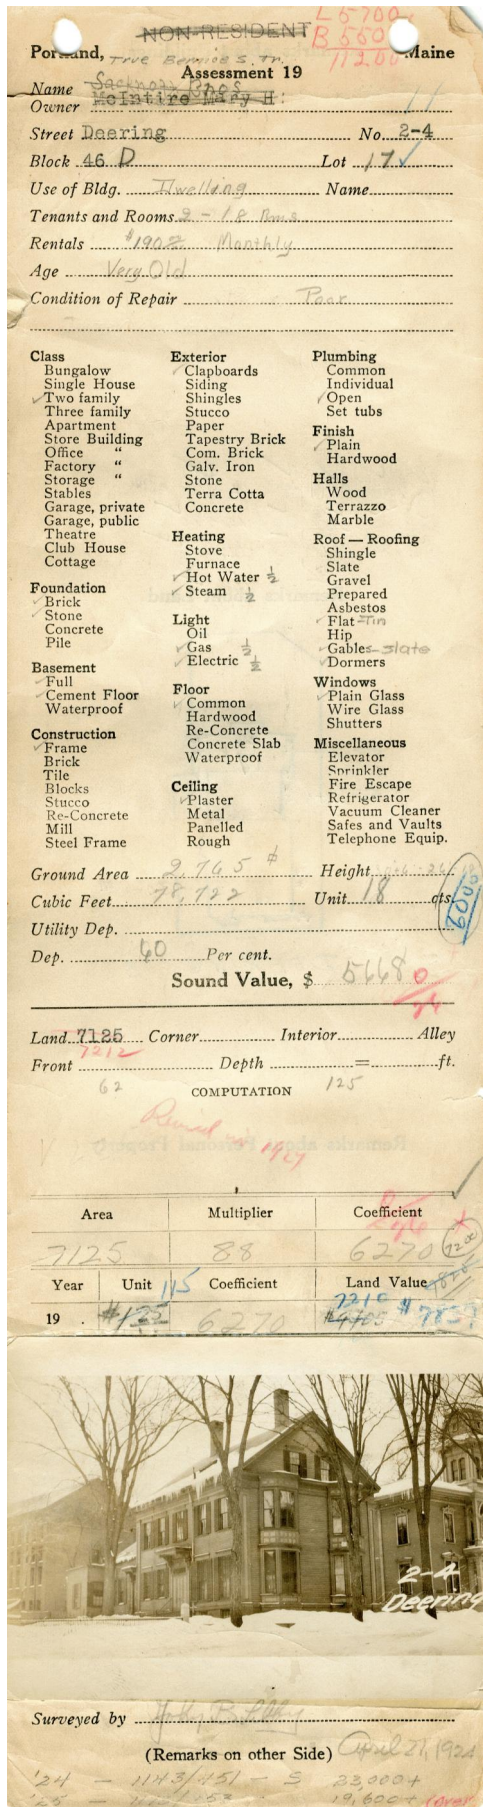 NON-RESIDENT
L 5700
B 550
11200
Portland, True Bernice S. Tr. Maine
Assessment 19
Name Sacknoff Bros
Owner McIntire Mary H.
Street Deering No. 2-4
Block 46 D Lot 17
Use of Bldg. Dwelling Name
Tenants and Rooms 2 - 18 Rms
Rentals $190 Monthly
Age Very Old
Condition of Repair Poor
Class
Bungalow
Single House
✓Two family
Three family
Apartment
Store Building
Office "
Factory "
Storage "
Stables
Garage, private
Garage, public
Theatre
Club House
Cottage
Foundation
✓Brick
✓Stone
Concrete
Pile
Basement
✓Full
✓Cement Floor
Waterproof
Construction
✓Frame
Brick
Tile
Blocks
Stucco
Re-Concrete
Mill
Steel Frame
Exterior
✓Clapboards
Siding
Shingles
Stucco
Paper
Tapestry Brick
Com. Brick
Galv. Iron
Stone
Terra Cotta
Concrete
Heating
Stove
Furnace
✓Hot Water ½
✓Steam ½
Light
Oil
✓Gas ½
✓Electric ½
Floor
✓Common
Hardwood
Re-Concrete
Concrete Slab
Waterproof
Ceiling
✓Plaster
Metal
Panelled
Rough
Plumbing
Common
Individual
✓Open
Set tubs
Finish
✓Plain
Hardwood
Halls
Wood
Terrazzo
Marble
Roof — Roofing
Shingle
Slate
Gravel
Prepared
Asbestos
✓Flat-Tin
Hip
✓Gables-slate
✓Dormers
Windows
✓Plain Glass
Wire Glass
Shutters
Miscellaneous
Elevator
Sprinkler
Fire Escape
Refrigerator
Vacuum Cleaner
Safes and Vaults
Telephone Equip.
Ground Area 2,765 Height
Cubic Feet 78,722 Unit 18 cts.
6000
Utility Dep.
Dep. 60 Per cent.
Sound Value, $ 5668
Land 7125 Corner Interior Alley
7212
Front Depth = ft.
62 125
COMPUTATION
Revised 1927
Area Multiplier Coefficient
7125 88 6270 7200
Year Unit 115 Coefficient Land Value
7210
19 . $125 6270 $7839
2-4
Deering
Surveyed by
(Remarks on other Side) April 21, 1924
'24 - 1143/451 - S 23,000+
'25 19,600+ (over